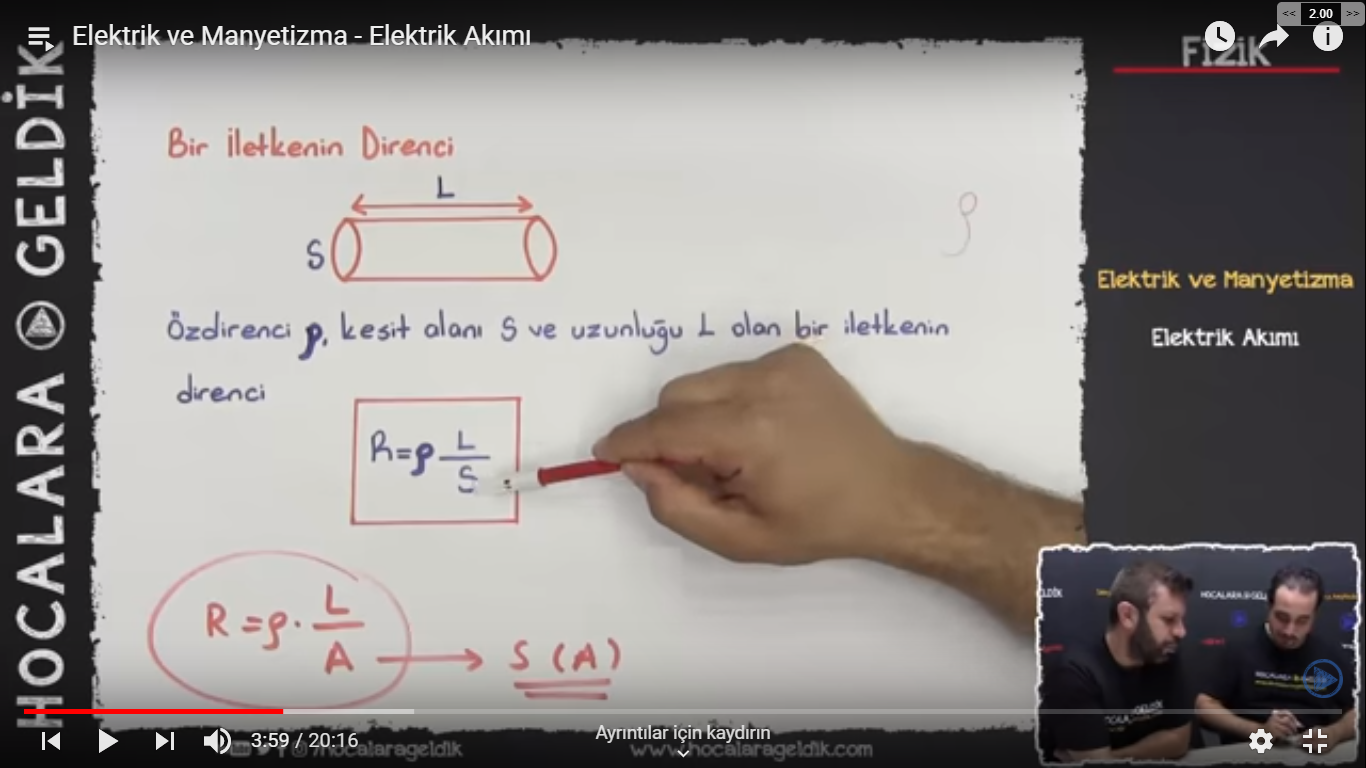 Elektrik ve Manyetizma - Elektrik Akımı
<< 2.00 >>
Fizik
HOCALARA GELDİK
Bir İletkenin Direnci
L
S
ρ
Özdirenci ρ, kesit alanı S ve uzunluğu L olan bir iletkenin
direnci
R=ρ L/S
R=ρ· L/A → S (A)
Elektrik ve Manyetizma
Elektrik Akımı
HOCALARA GELDİK
3:59 / 20:16
Ayrıntılar için kaydırın
/hocalarageldik
www.hocalarageldik.com